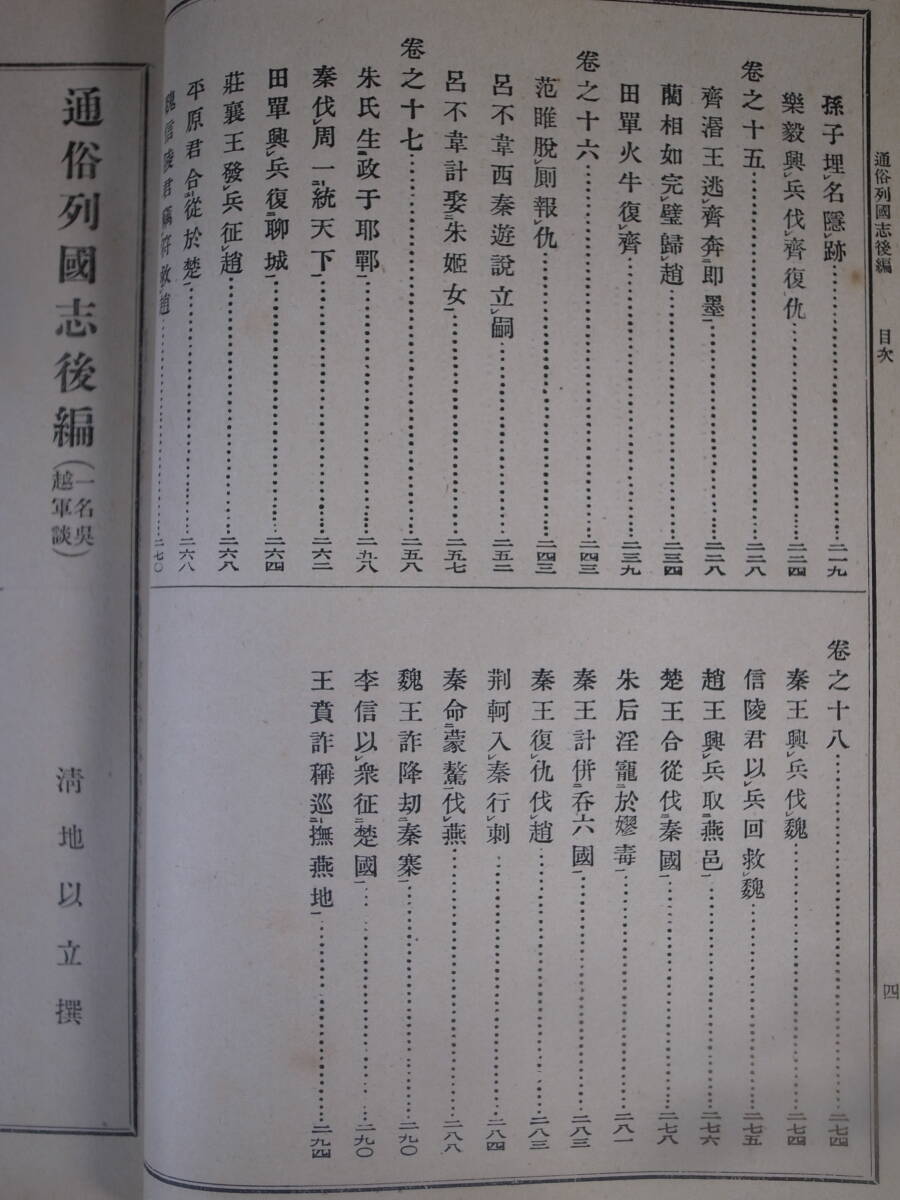 通俗列國志後編 目次
四
孫子埋レ名隱レ跡……二一九
樂毅興レ兵伐レ齊復レ仇……二二四
卷之十五……二二八
齊湣王逃レ齊奔二卽墨一……二二八
藺相如完レ璧歸レ趙……二三四
田單火牛復レ齊……二三九
卷之十六……二四三
范雎脫レ厠報レ仇……二四三
呂不韋西秦遊說立レ嗣……二五二
呂不韋計娶二朱姬女一……二五七
卷之十七……二五八
朱氏生二政于耶鄲一……二五八
秦伐レ周一二統天下一……二六二
田單興レ兵復二聊城一……二六四
莊襄王發レ兵征レ趙……二六八
平原君合二從於楚一……二六八
魏信陵君竊レ符救レ趙……二七〇
卷之十八……二七四
秦王興レ兵伐レ魏……二七四
信陵君以レ兵回救レ魏……二七五
趙王興レ兵取二燕邑一……二七六
楚王合從伐二秦國一……二七八
朱后淫寵二於嫪毒一……二八一
秦王計併二吞六國一……二八三
秦王復レ仇伐レ趙……二八三
荆軻入レ秦行レ刺……二八四
秦命二蒙驁一伐レ燕……二八八
魏王詐降劫二秦寨一……二九〇
李信以レ衆征二楚國一……二九〇
王賁詐稱巡二撫燕地一……二九四
通俗列國志後編(一名吳越軍談)
淸地以立撰